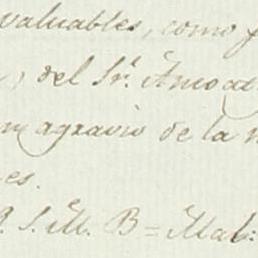 valuables, como
del Sr. Amo
agravio de la
es.
S. M. B = Mab: